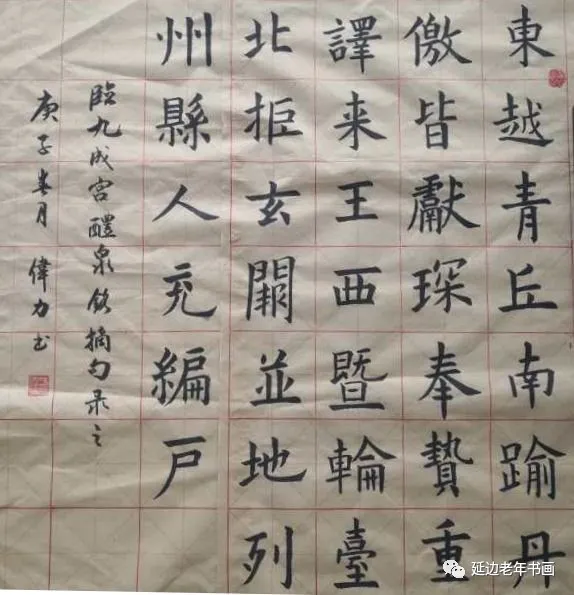 東越青丘南踰丹
儌皆獻琛奉贄重
譯来王西暨輪臺
北拒玄闕並地列
州縣人充編戸
臨九成宮醴泉銘摘句录之
庚子春月 偉力书
延边老年书画